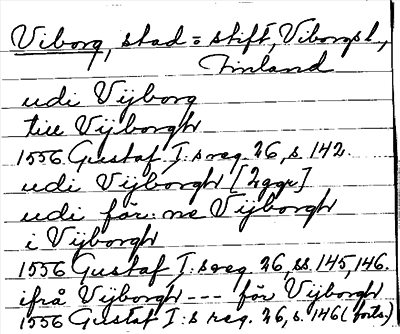 Viborg, stad = stift, Viborgsl.,
Finland
udi Vijborg
till Vijborgh
1556 Gustaf I:s reg. 26, s. 142.
udi Vijborgh [2 ggr]
udi för:ne Vijborgh
i Vijborgh
1556 Gustaf I:s reg. 26, ss. 145, 146.
ifrå Vijborgh --- för Vijborgh
1556 Gustaf I:s reg. 26, s. 146 (forts.)